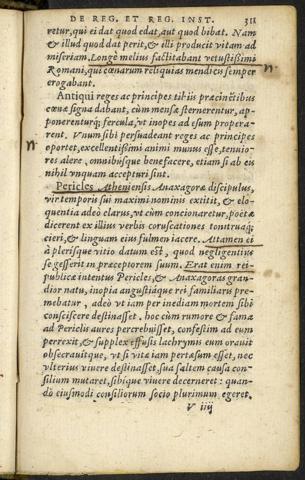 DE REG. ET REG. INST. 311
retur, qui ei dat quod edat, aut quod bibat. Nam
& illud quod dat perit, & illi producit vitam ad
miseriam. Longè melius factitabant vetustißimi
Romani, qui cœnarum reliquias mendicis semper
erogabant.
Antiqui reges ac principes tibiis præcinētibus
cœnæ signa dabant, cùm mensæ sternerentur, ap-
ponerenturq́; fercula, vt inopes ad esum propera-
rent. Vnum sibi persuadeant reges ac principes
oportet, excellentißimi animi munus esse, tenuio-
res alere, omnibúsque benefacere, etiam si ab eis
nihil vnquam accepturi sint.
Pericles Atheniensis Anaxagoræ discipulus,
vir temporis sui maximi nominis extitit, & elo-
quentia adeò clarus, vt cùm concionaretur, poëtæ
dicerent ex illius verbis coruscationes tonitruaq́;
cieri, & linguam eius fulmen iacere. Attamen ei
à plerisque vitio datum est, quod negligentius
se gesserit in præceptorem suum. Erat enim rei-
publicæ intentus Pericles, & Anaxagoras gran-
dior natu, inopia angustiáque rei familiaris pre-
mebatur, adeò vt iam per inediam mortem sibi
consciscere destinasset. hoc cùm rumore & fama
ad Periclis aures percrebuisset, confestim ad eum
perrexit, & supplex effusis lachrymis eum orauit
obsecrauitque, vt si vitæ iam pertæsum esset, nec
vlterius viuere destinasset, sua saltem causa con-
silium mutaret, sibíque viuere decerneret: quan-
dò eiusmodi consiliorum socio plurimum egeret.
V iiij